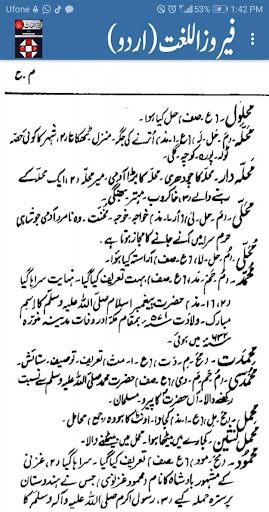 Ufone 53% 1:42 PM
فیروز اللغت (اردو)
م۔ع
محلول۔ (ع۔صف) حل کیا ہوا۔
محلہ۔ (مَ۔حَل۔لَہ) (ع۔ا۔مذ) اُترنے کی جگہ۔ منزل۔ ٹھکانا (۲) شہر کا کوئی حصہ
ٹولہ۔ پورہ۔ کوچہ۔ گلی۔
محلہ دار۔ محلہ کا چودھری۔ محلہ کا بڑا آدمی۔ میر محلہ (۲) ایک محلہ کے
رہنے والے (۳) خاکروب۔ مہتر۔ بھنگی۔
محلی۔ (مَ۔حَل۔لی) (اُر۔ا۔مذ) خواجہ۔ خوجہ۔ مخنث۔ وہ نامرد آدمی جو شاہی
حرم سرا میں آنے جانے کا مجاز ہوتا ہے۔
محلّٰی۔ (مُ۔حَل۔لٰی) (ع۔صف) آراستہ کیا ہوا۔
محمد۔ (مُ۔حَم۔مَد) (ع۔صف) بہت تعریف کیا گیا۔ نہایت سراہا گیا
(۲) (ا۔مذ) حضرت پیغمبر اسلام صلی اللہ علیہ وسلم کا اسم
مبارک۔ ولادت ۵۷۱ء بمقام مکہ اور وفات مدینہ منورہ
۶۳۲ء میں ہوئی۔
محمدت۔ (مَح۔مِ۔دَت) (ع۔ا۔مث) تعریف۔ توصیف۔ ستائش۔
محمدی۔ (مُ۔حَم۔مَ۔دی) (ع۔صف) حضرت محمد صلی اللہ علیہ وسلم سے نسبت
رکھنے والا۔ آں حضرت کا پیرو۔ مسلمان۔
محمل۔ (مَح۔مِل) (ع۔ا۔مذ) کجاوا۔ اونٹ کا ہودہ (جمع) محامل
محمل نشین۔ کجاوے میں بیٹھا ہوا۔ محمل میں بیٹھنے والا۔
محمود۔ (مَح۔مُود) (ع۔صف) تعریف کیا گیا۔ سراہا گیا (۲) غزنی
کے مشہور بادشاہ کا نام (محمود غزنوی) جس نے ہندوستان
پر سترہ حملے کیے (۳) رسول اکرم صلی اللہ علیہ وآلہ وسلم کا